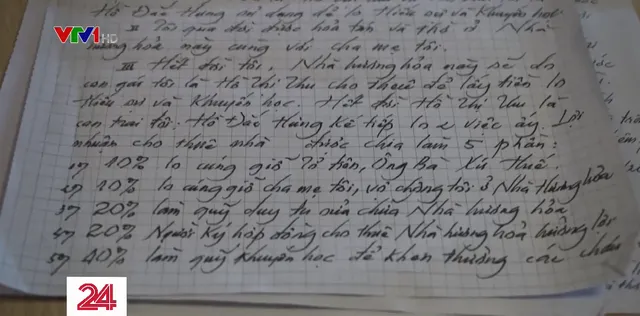 VTV1 HD
Hồ Đắc Hưng sử dụng để lo Hiếu sự và Khuyến học
II Tôi qua đời được hỏa táng và thờ ở Nhà
hương hỏa này cùng với cha mẹ tôi.
III Hết đời tôi, Nhà hương hỏa này sẽ do
con gái tôi là Hồ Thị Thu cho thuê để lấy tiền lo
Hiếu sự và Khuyến học. Hết đời Hồ Thị Thu là
con trai tôi: Hồ Đắc Hưng kế tiếp lo việc ấy. Lợi
nhuận cho thuê nhà được chia làm 5 phần:
1) 10% lo cúng giỗ Tổ tiên, Ông Bà Xứ Huế
2) 10% lo cúng giỗ cha mẹ tôi, vợ chồng tôi ở Nhà Hương hỏa
3) 20% làm quỹ duy tu sửa chữa Nhà hương hỏa
4) 20% Người ký hợp đồng cho thuê Nhà hương hỏa hưởng lợi
5) 40% làm quỹ Khuyến học để khen thưởng các cháu
24